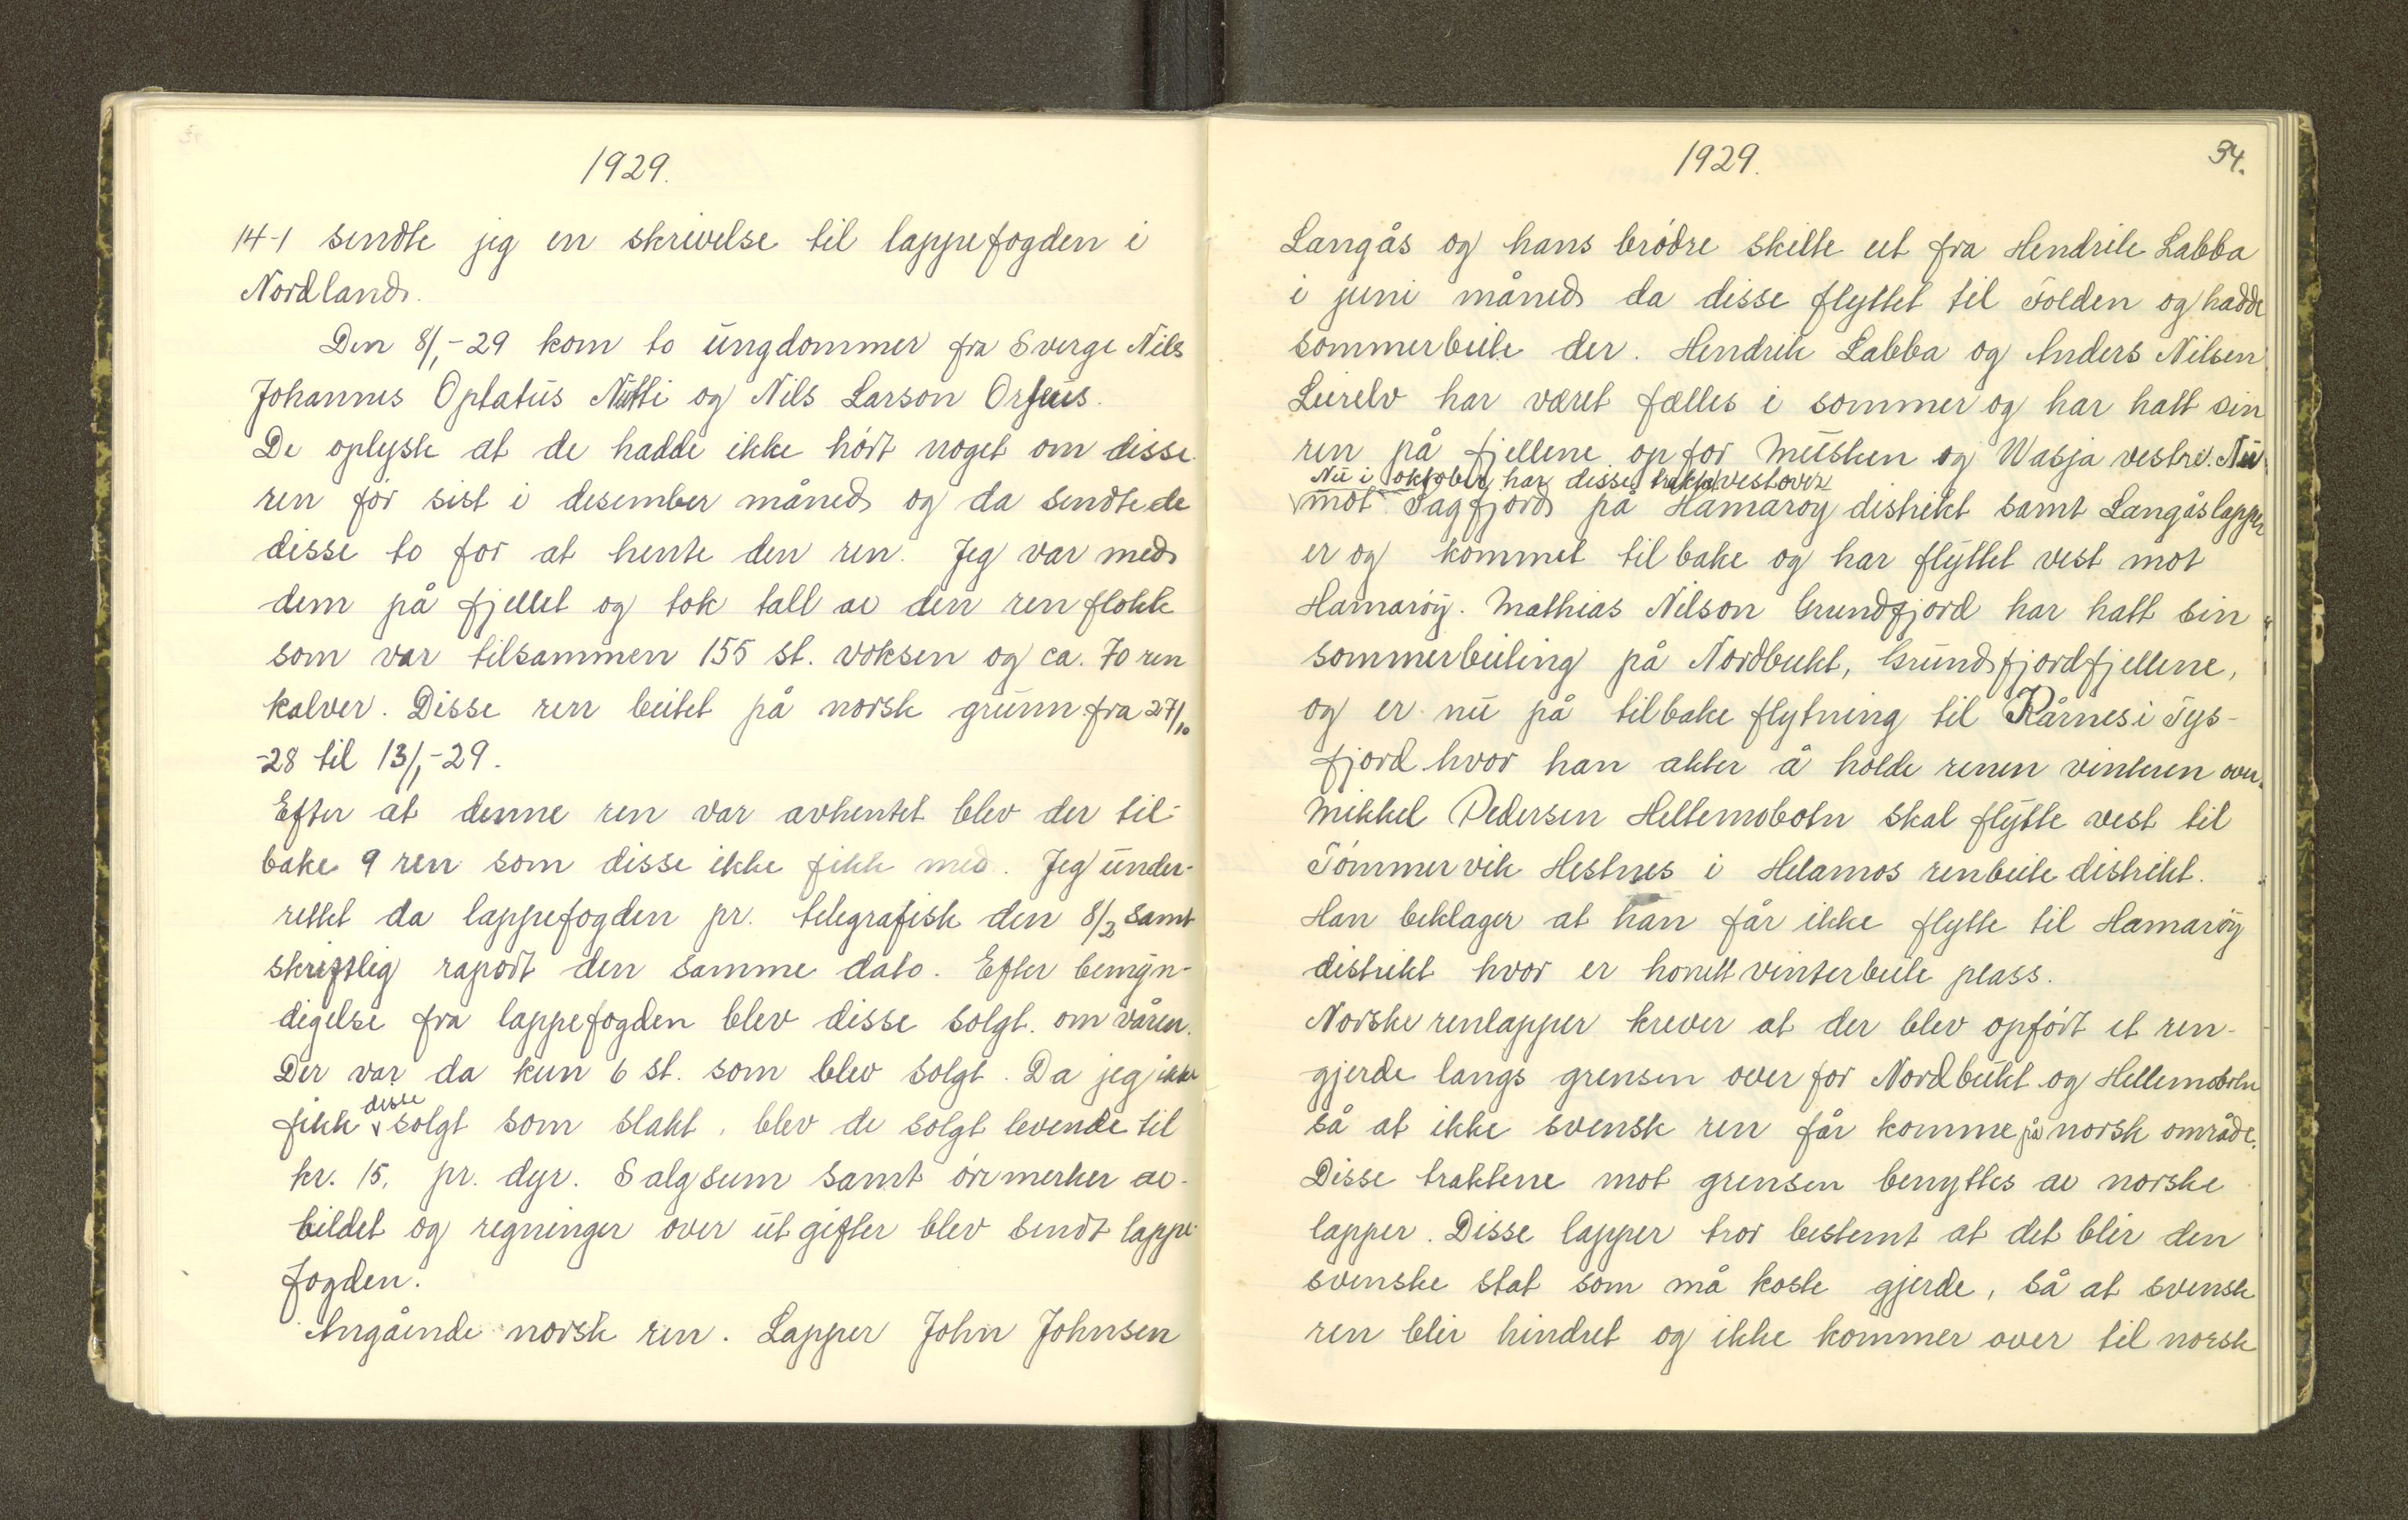 1929.
14-1 sendte jeg en skrivelse til lappefogden i
Nordland.
Den 8/1-29 kom to ungdommer fra Sverge Nils
Johannes Optatus Nutti og Nils Larson Orfeus.
De oplyste at de hadde ikke hørt noget om disse
ren før sist i desember måned og da sendte de
disse to for at hente den ren. Jeg var med
dem på fjellet og tok tall av den renflokk
som var tilsammen 155 st. voksen og ca. 70 ren
kalver. Disse ren beitet på norsk grunn fra 27/10
-28 til 13/1-29.
Efter at denne ren var avhentet blev der til-
bake 9 ren som disse ikke fikk med. Jeg under-
rettet da lappefogden pr. telegrafisk den 8/2 samt
skriftlig raport den samme dato. Efter bemyn-
digelse fra lappefogden blev disse solgt om våren.
Der var da kun 6 st. som blev solgt. Da jeg ikke
fikk disse solgt som slakt, blev de solgt levende til
kr. 15, pr. dyr. Salgsum samt øremerker av-
bildet og regninger over utgifter blev sendt lappe-
fogden.
Angående norsk ren. Lapper John Johnsen
1929.
34.
Langås og hans brødre skilte ut fra Hendrik Labba
i juni måned da disse flyttet til Folden og hadde
sommerbeite der. Hendrik Labba og Anders Nilsen
Leirelv har været fælles i sommer og har hatt sin
ren på fjellene op for Musken og Wasja vestre. Nu
Nu i oktober har disse trekte vestover
mot Sagfjord på Hamaroy distrikt samt Langåslapper
er og kommet tilbake og har flyttet vest mot
Hamarøy. Mathias Nilson Grundfjord har hatt sin
sommerbeiting på Nordbukt, Grundfjordfjellene,
og er nu på tilbake flytning til Kårnes i Tys-
fjord hvor han akter å holde renen vinteren over.
Mikkel Pedersen Hellemobotn skal flytte vest til
Tømmervik Hestnes i Helamos renbeite distrikt.
Han beklager at han får ikke flytte til Hamarøy
distrikt hvor er honett vinterbeite plass.
Norske renlapper krever at der blev opført et ren-
gjerde langs grensen over for Nordbukt og Hellemobotn
så at ikke svensk ren får komme på norsk område.
Disse traktene mot grensen benyttes av norske
lapper. Disse lapper tror bestemt at det blir den
svenske stat som må koste gjerde, så at svensk
ren blir hindret og ikke kommer over til norsk